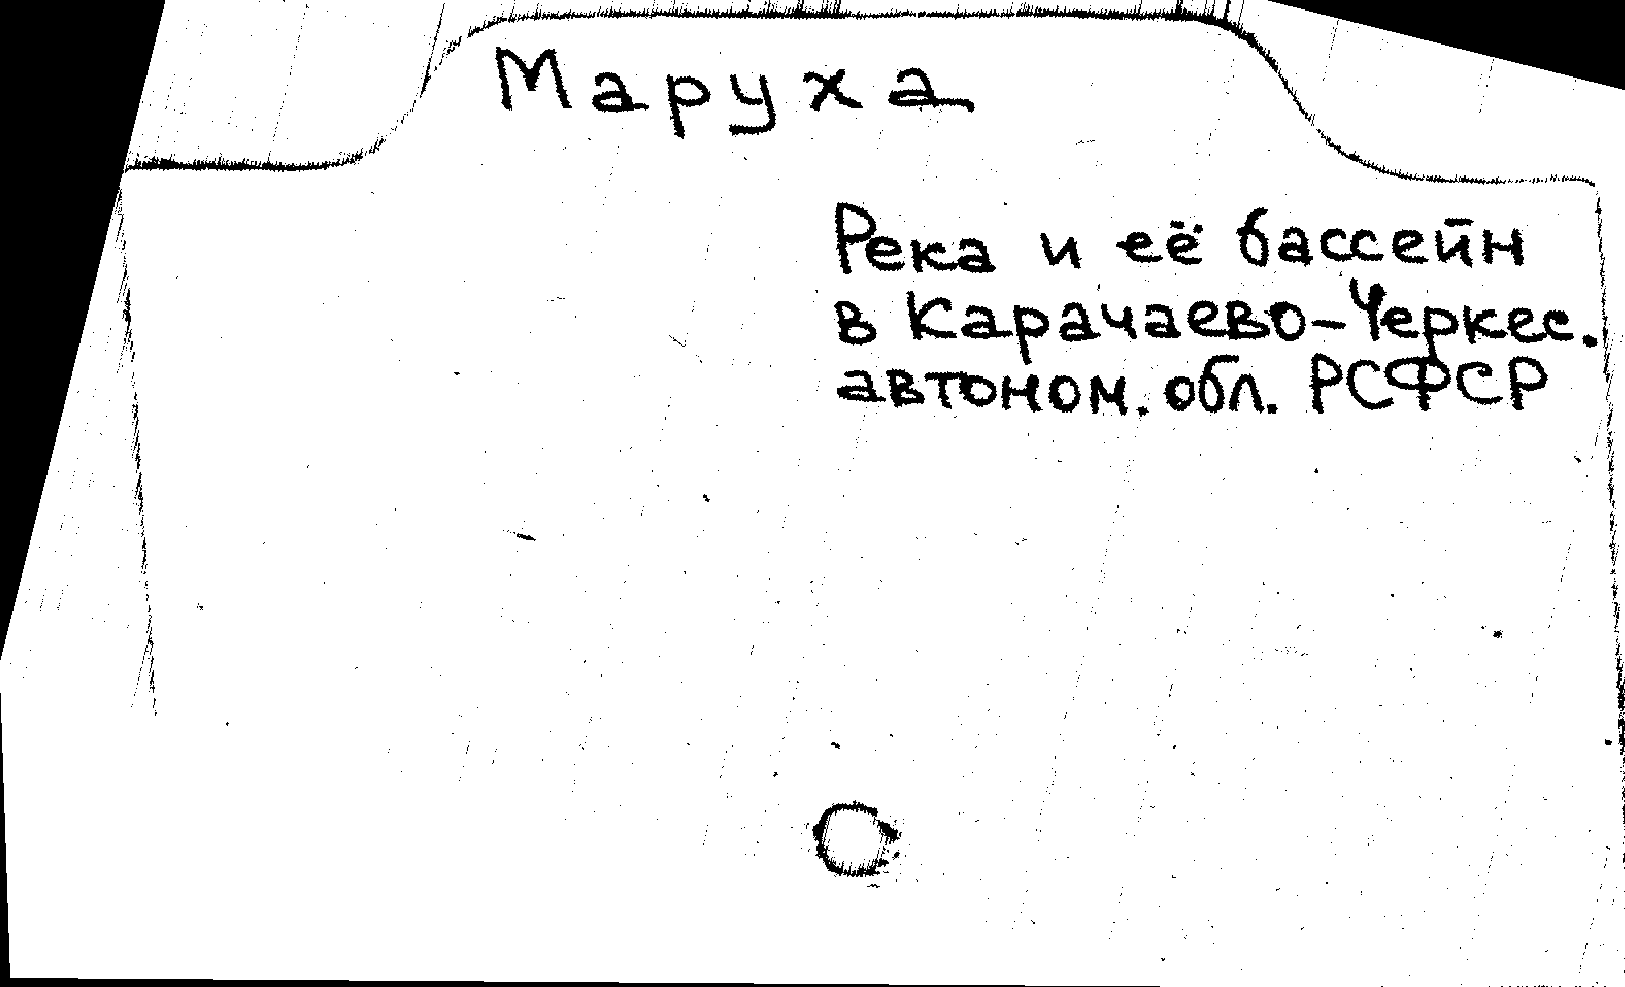 Маруха
Река и её бассейн
в Карачаево-Черкес.
автоном. обл. РСФСР